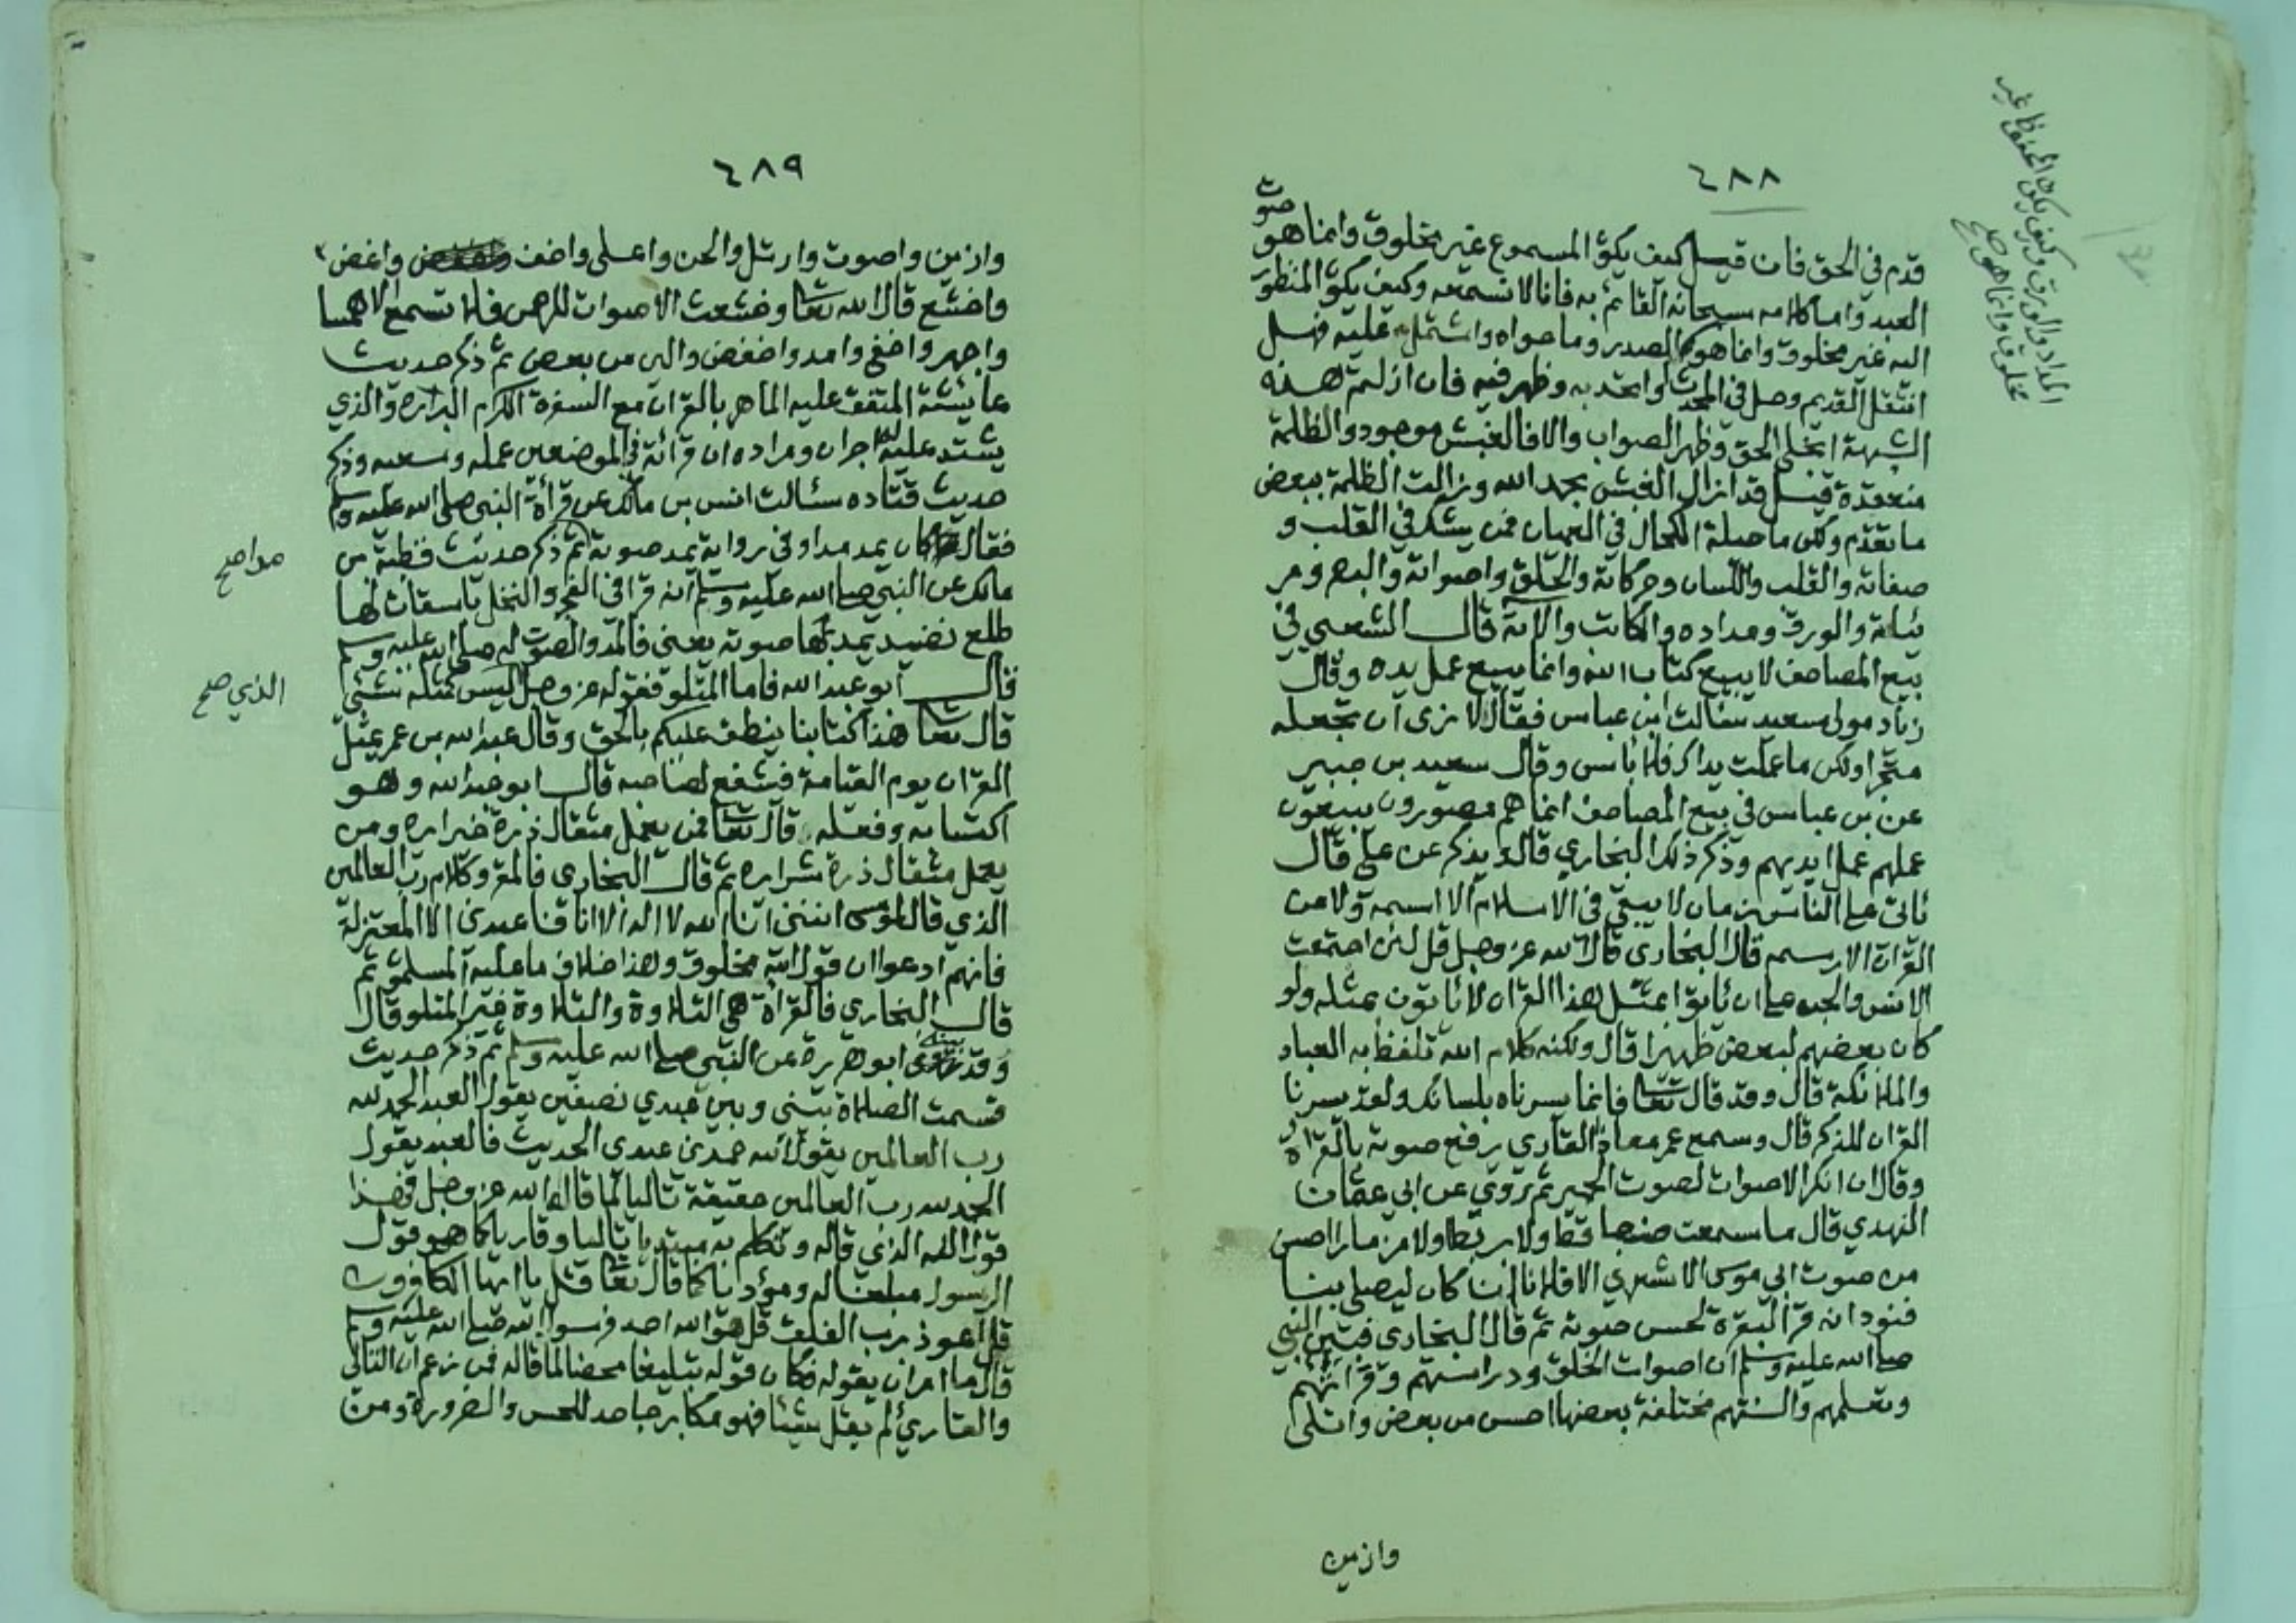 ٤٨٨
قدم في الحق فان قيل كيف يكون المسموع غير مخلوق وانما هو صوت
العبد واما كلامه سبحانه القائم به فانا لا نسمعه وكيف يكون المنظور
اليه غير مخلوق وانما هو المداد والورق وكيف يكون المحفوظ غير مخلوق وانما هو صح
الصدر وما حواه واشتمل عليه فهل
انتقل القديم وحل في المحدث او اتحد به وظهر فيه فان ازلتم هذه
الشبهة انجلى الحق وظهر الصواب والا فالغبش موجود والظلمة
منعقدة قيل قد زال الغبش بحمد الله وزالت الظلمة ببعض
ما تقدم ولكن ما حيلة الكحال في العميان فمن يشك في القلب و
صفاته والقلب واللسان وحركاته والحلق واصواته والبصر ومر
ئياته والورق ومداده والكاتب والاته قال الشعبي في
بيع المصاحف لا يبيع كتاب الله وانما يبيع عمل يده وقال
زياد مولى سعيد سئالت ابن عباس فقال لا نرى ان تجعله
متجرا ولكن ما عملت يداك فلا بأس وقال سعيد بن جبير
عن بن عباس في بيع المصاحف انما هم مصورون يبيعون
عملهم عمل ايديهم وذكر ذلك البخاري قال ويذكر عن علي قال
ياتي على الناس زمان لا يبقى في الاسلام الا اسمه ولا من
القران الا رسمه قال البخاري قال الله عز وجل قل لئن اجتمعت
الانس والجن على ان ياتوا بمثل هذا القران لا ياتون بمثله ولو
كان بعضهم لبعض ظهيرا قال ولكنه كلام الله تلفظ به العباد
والملائكة قال وقد قال تعا فانما يسرناه بلسانك ولقد يسرنا
القران للذكر قال وسمع عمر معاذ القاري يرفع صوته بالقراة
وقال ان انكر الاصوات لصوت الحمير ثم روي عن ابي عثمان
النهدي قال ما سمعت صنجا قط ولا بربطا ولا مزمارا احسن
من صوت ابي موسى الاشعري الا فلانا ان كان ليصلي بنا
فنود انه قرا البقرة لحسن صوته ثم قال البخاري فبين النبي
صلى الله عليه وسلم ان اصوات الخلق ودراستهم وقراتهم
وتعلمهم والسنتهم مختلفة بعضها احسن من بعض واتلى
وازين
٤٨٩
وازين واصوت وارتل والحن واعلى واخف واغض
واخشع قال الله تعا وخشعت الاصوات للرحمن فلا تسمع الا همسا
واجهر واخفى وامد واخفض والين من بعض ثم ذكر حديث
عائشة المتفق عليه الماهر بالقران مع السفرة الكرام البررة والذي
يشتد عليه له اجران ومراده ان قرائة في الموضعين عمله وسعيه وذكر
حديث قتاده سئالت انس بن مالك عن قرأة النبي صلى الله عليه وسلم
فقال كان يمد مدا وفي رواية يمد صوته ثم ذكر حديث قطبة بن
مالك عن النبي صلى الله عليه وسلم انه قرا في الفجر والنخل باسقات لها
طلع نضيد يمد بها صوته يعني فالمد والصوت له صلى الله عليه وسلم
قال ابو عبد الله فاما المتلو فقوله عز وجل الذي صح ليس كمثله شئ
قال تعا هذا كتابنا ينطق عليكم بالحق وقال عبد الله بن عمر يمثل
القران يوم القيامة فيشفع لصاحبه قال ابو عبد الله وهو
اكتسابه وفعله قال تعا فمن يعمل مثقال ذرة خيرا يره ومن
يعمل مثقال ذرة شرا يره ثم قال البخاري فالمقرو كلام رب العالمين
الذي قال لموسى انني انا الله لا اله الا انا فاعبدني الا المعتزلة
فانهم ادعوا ان قول الله مخلوق وهذا خلاف ما عليه المسلمون ثم
قال البخاري فالقرأة هي التلاوة والتلاوة غير المتلو قال
وقد بينه ابو هريرة عن النبي صلى الله عليه وسلم ثم ذكر حديث
قسمت الصلاة بيني وبين عبدي نصفين يقول العبد الحمد لله
رب العالمين يقول الله حمدني عبدي الحديث فالعبد يقول
الحمد لله رب العالمين حقيقة تاليا لما قاله الله عز وجل فهذا
قول الله الذي قاله وتكلم به مبتديا تاليا وقاريا كما هو قول
الرسول مبلغا له ومؤديا كما قال تعا قل يا ايها الكافرون
قل اعوذ برب الفلق قل هو الله احد فرسول الله صلى الله عليه وسلم
قال ما امر ان يقوله فكان قوله تبليغا محضا لما قاله فمن زعم ان التالي
والقاري لم يقل شيئا فهو مكابر جاحد للحس والضرورة ومن